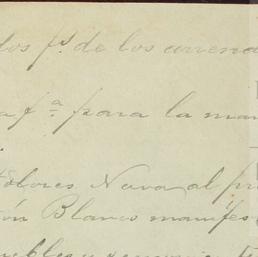 los ps de los arrenda
a fª para la man
Dolores Nava al pr
ón Blanco manifes